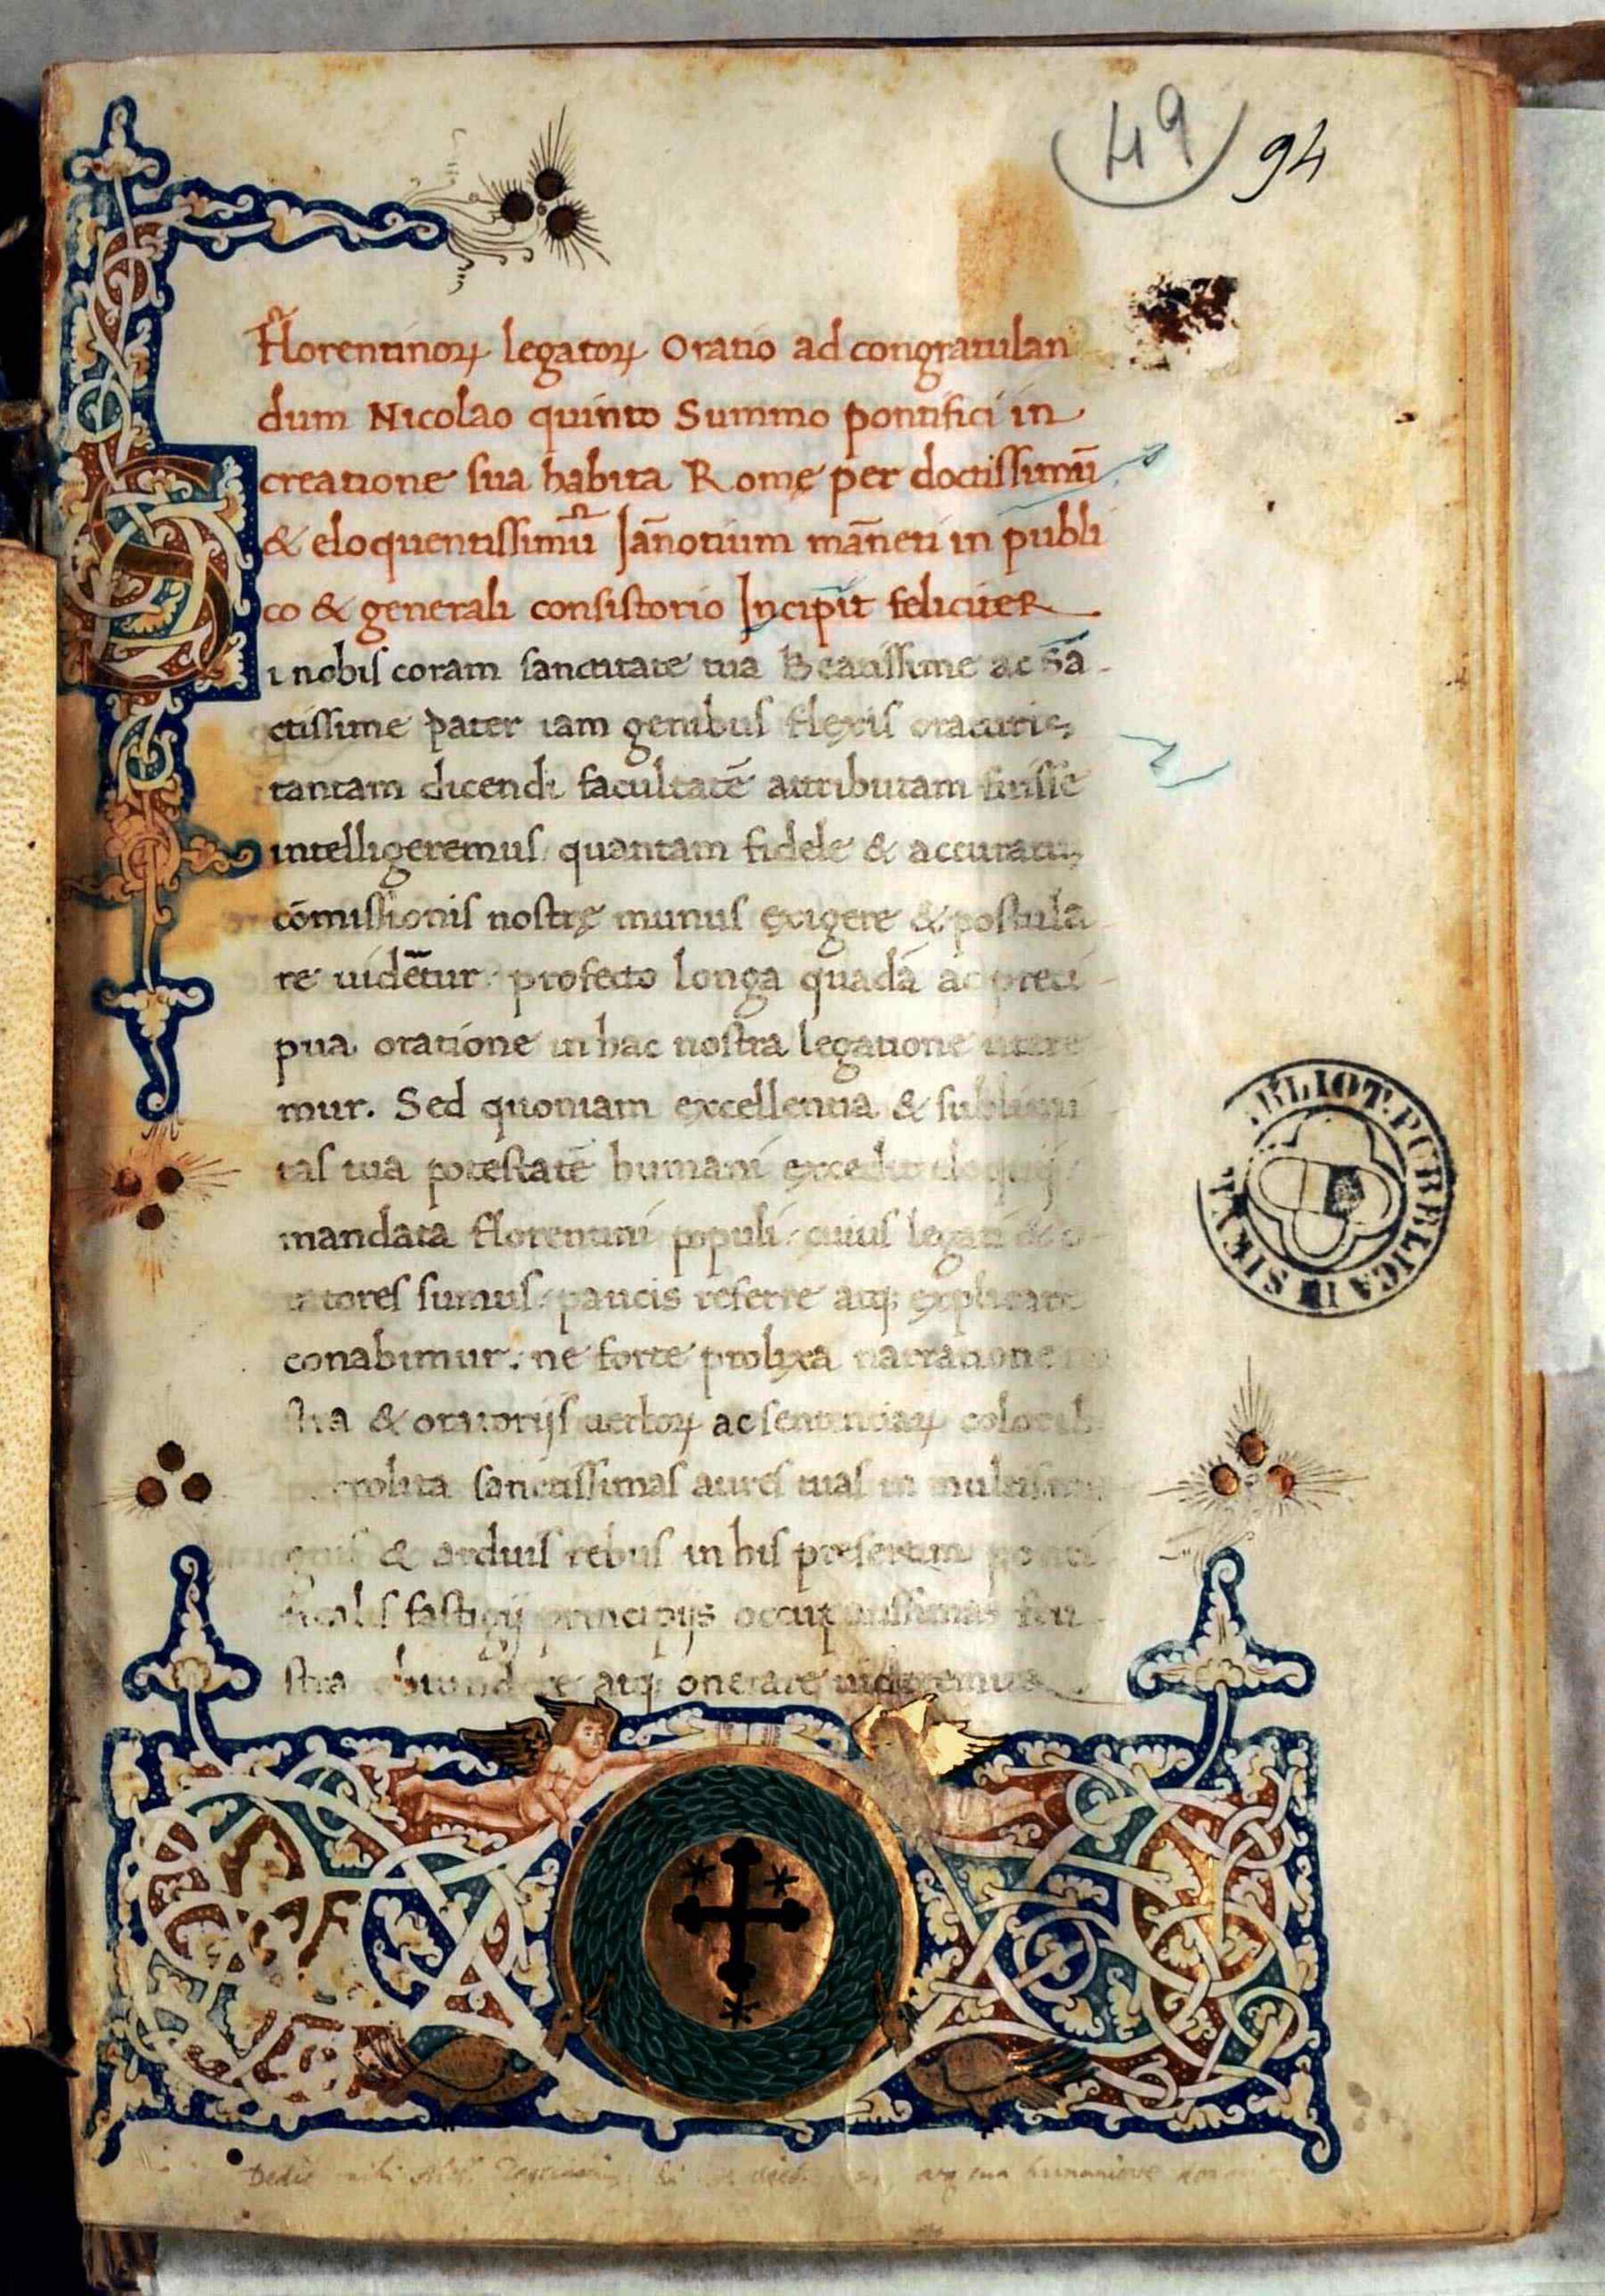 49 94
Florentinoꝝ legatoꝝ Oratio ad congratulan
dum Nicolao quinto Summo pontifici in
creatione sua habita Romę per doctissimū
& eloquentissimū Jānotium māneti in publi
co & generali consistorio Incipit feliciter
Si nobis coram sanctitate tua Beatissime ac Sā
ctissime pater iam genibus flexis oraturis
tantam dicendi facultatē attributam fuisse
intelligeremus quantam fidele & accuratum
cōmissionis nostrę munus exigere & postula
re uidetur profecto longa quadā ac preci
pua oratione in hac nostra legatione utere
mur. Sed quoniam excellentia & sublimi
tas tua potestatē humani excedit eloquij
mandata florentini populi cuius legati & o
ratores sumus paucis referre atq; explicare
conabimur. ne forte prolixa narratione no
stra & oratorijs uerboꝝ ac sententiaꝝ colorib
sanctissimas aures tuas in multis
gnis & arduis rebus in his presertim ponti
ficalis fastigij principijs occupatissimas fru
stra obtundere atq; onerare uideremur
BIBLIOT. PUBBLICA DI SIENA
Dedit mihi humaniore